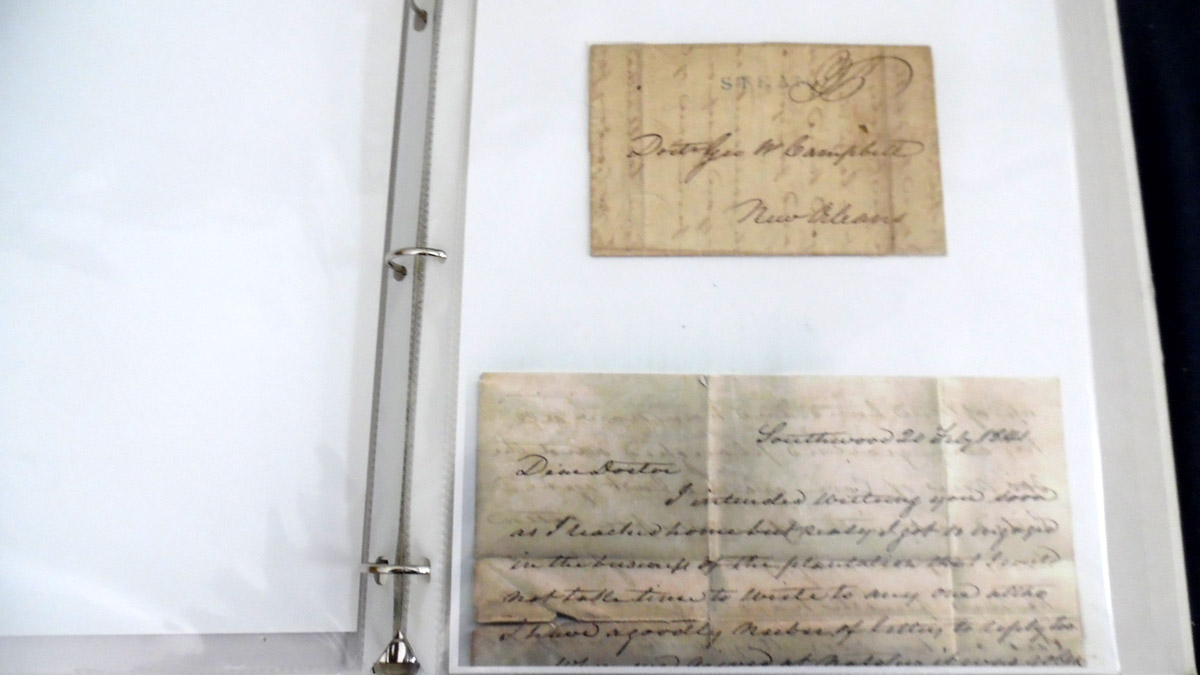 STEAM
Doctor Geo W Campbell
New Orleans
Southwood 20 Feby 1841
Dear Doctor
I intended writing you soon
as I reached home but really I got so engaged
in the business of the plantation that I could
not take time to write to any one altho
I have a goodly number of letters to reply to
When we arrived at it was